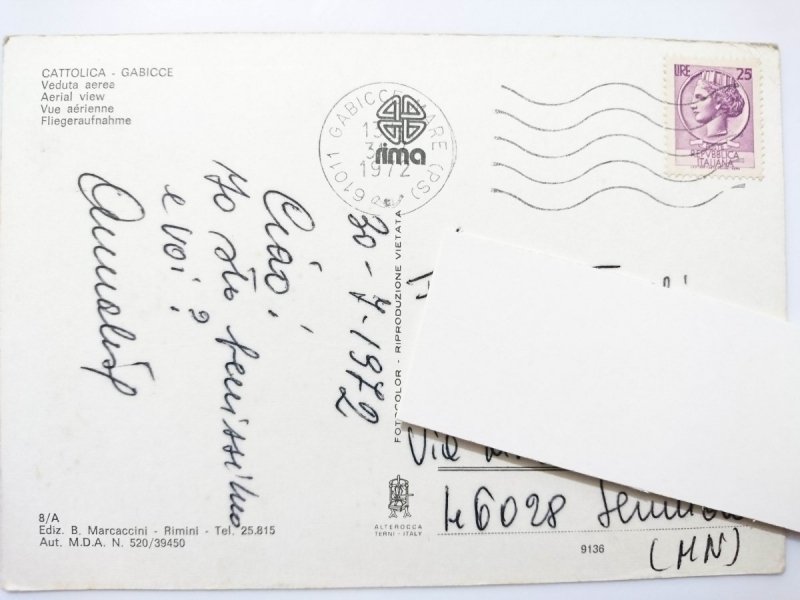 CATTOLICA - GABICCE
Veduta aerea
Aerial view
Vue aérienne
Fliegeraufnahme
61011 GABICCE MARE (PS)
13
1972
rima
LIRE 25
REPVBBLICA
ITALIANA
30-7-1972
Ciao!
Io sto benissimo
e voi?
FOTOCOLOR - RIPRODUZIONE VIETATA
Via
46028
(MN)
8/A
Ediz. B. Marcaccini - Rimini - Tel. 25.815
Aut. M.D.A. N. 520/39450
ALTEROCCA
TERNI - ITALY
9136